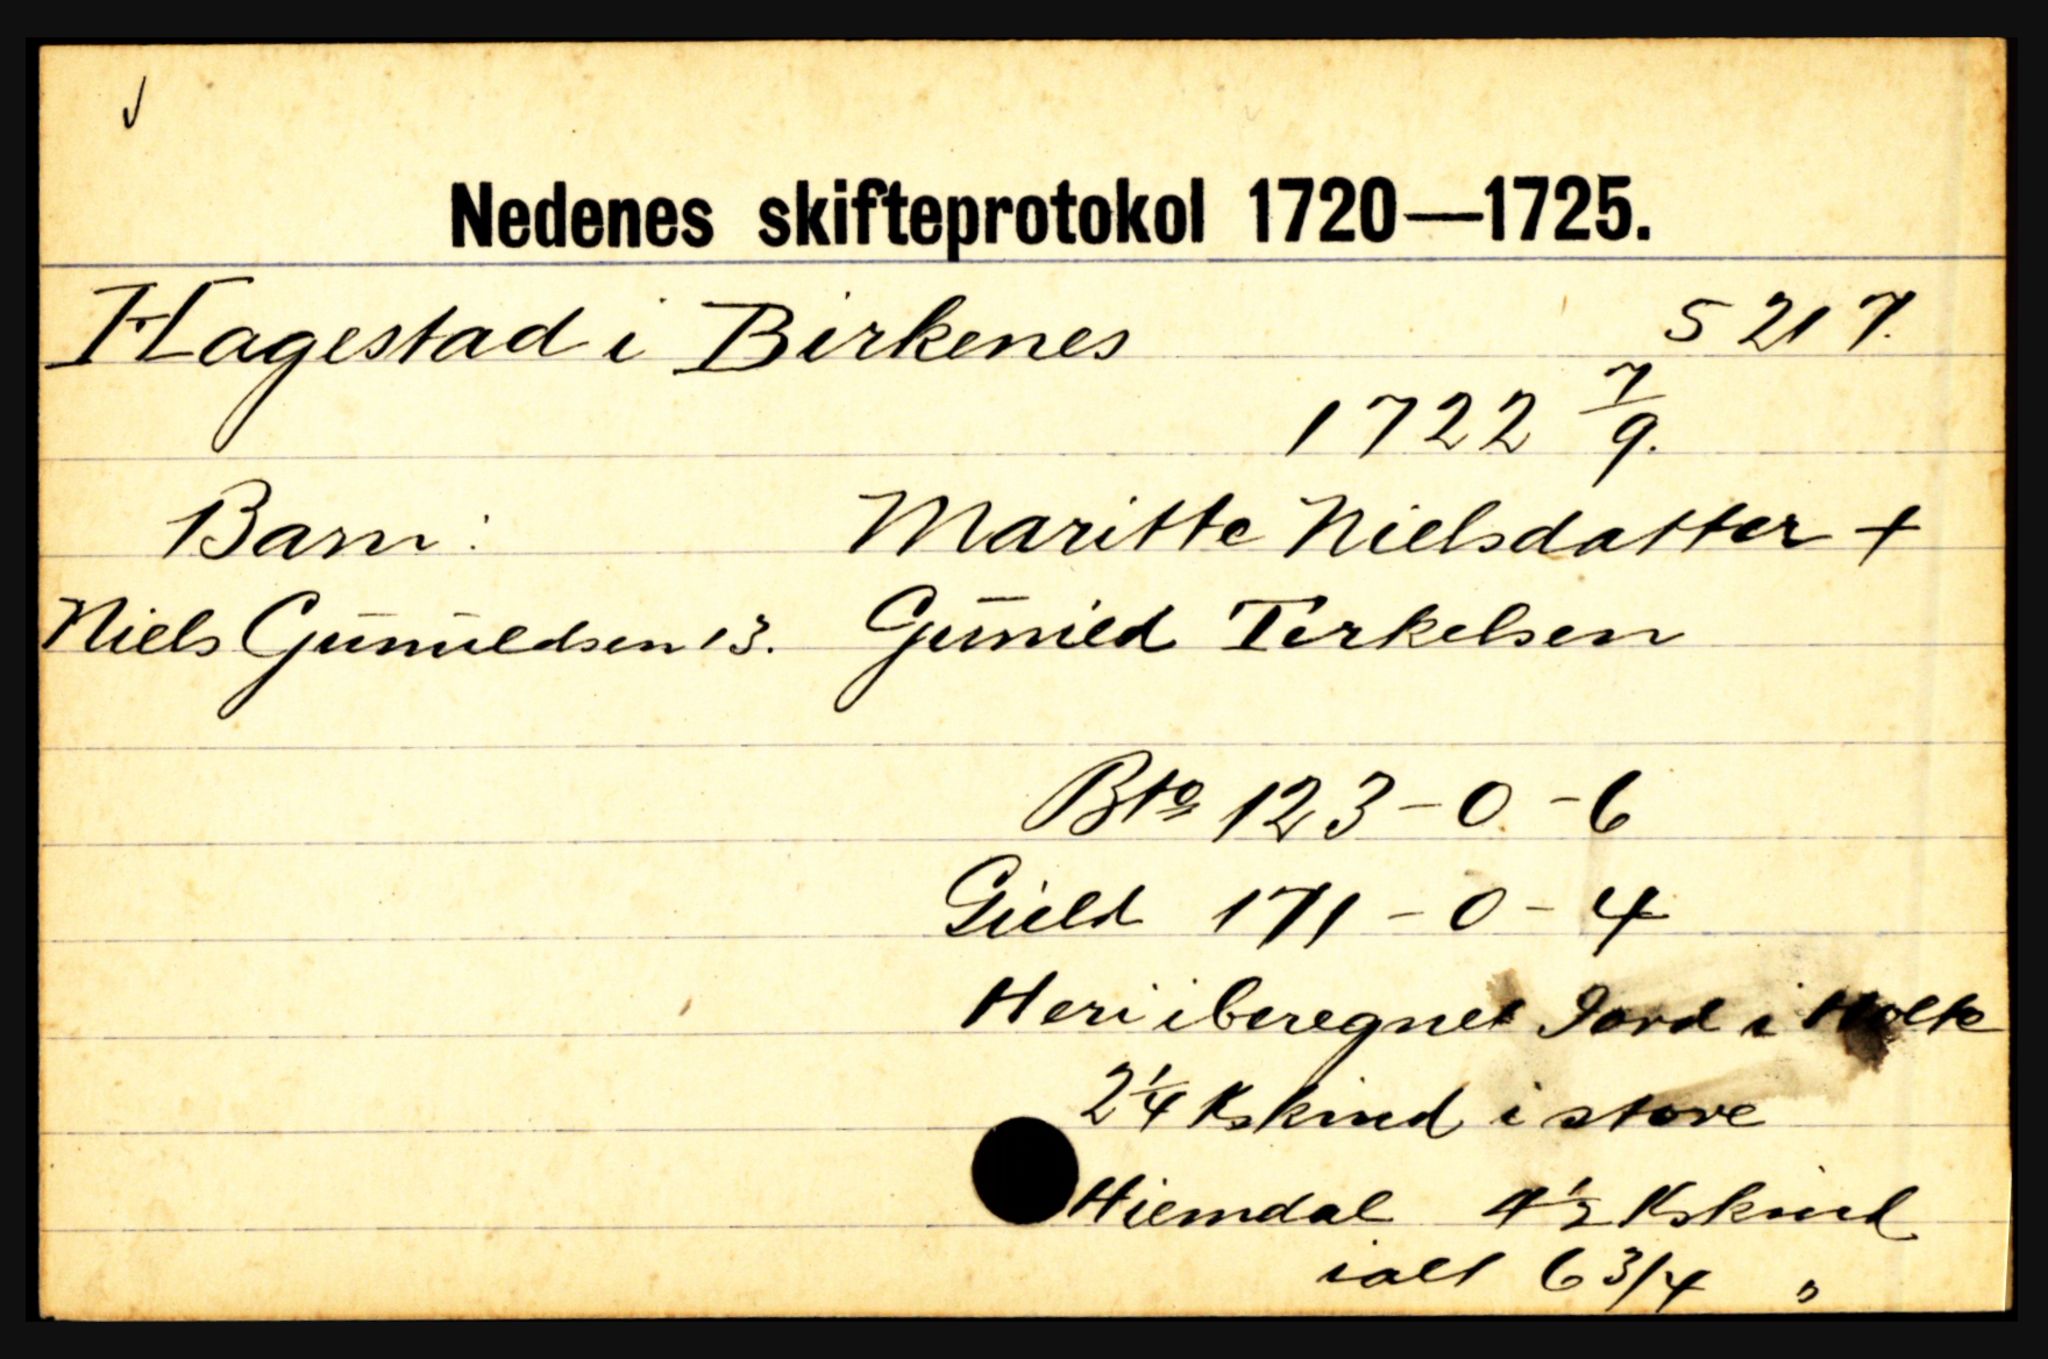 Nedenes skifteprotokol 1720—1725.
Hagestad i Birkenes S 217.
1722 7/9.
Barn: Maritte Nielsdatter +
Niels Gunnuldsen 13. Gunnild Terkelsen
Bto 123-0-6
Gield 171-0-4
Heri iberegnet Jord i Holte
2 1/4 Kskind i store
Hiemdal 4 1/2 Kskind
ialt 6 3/4 "